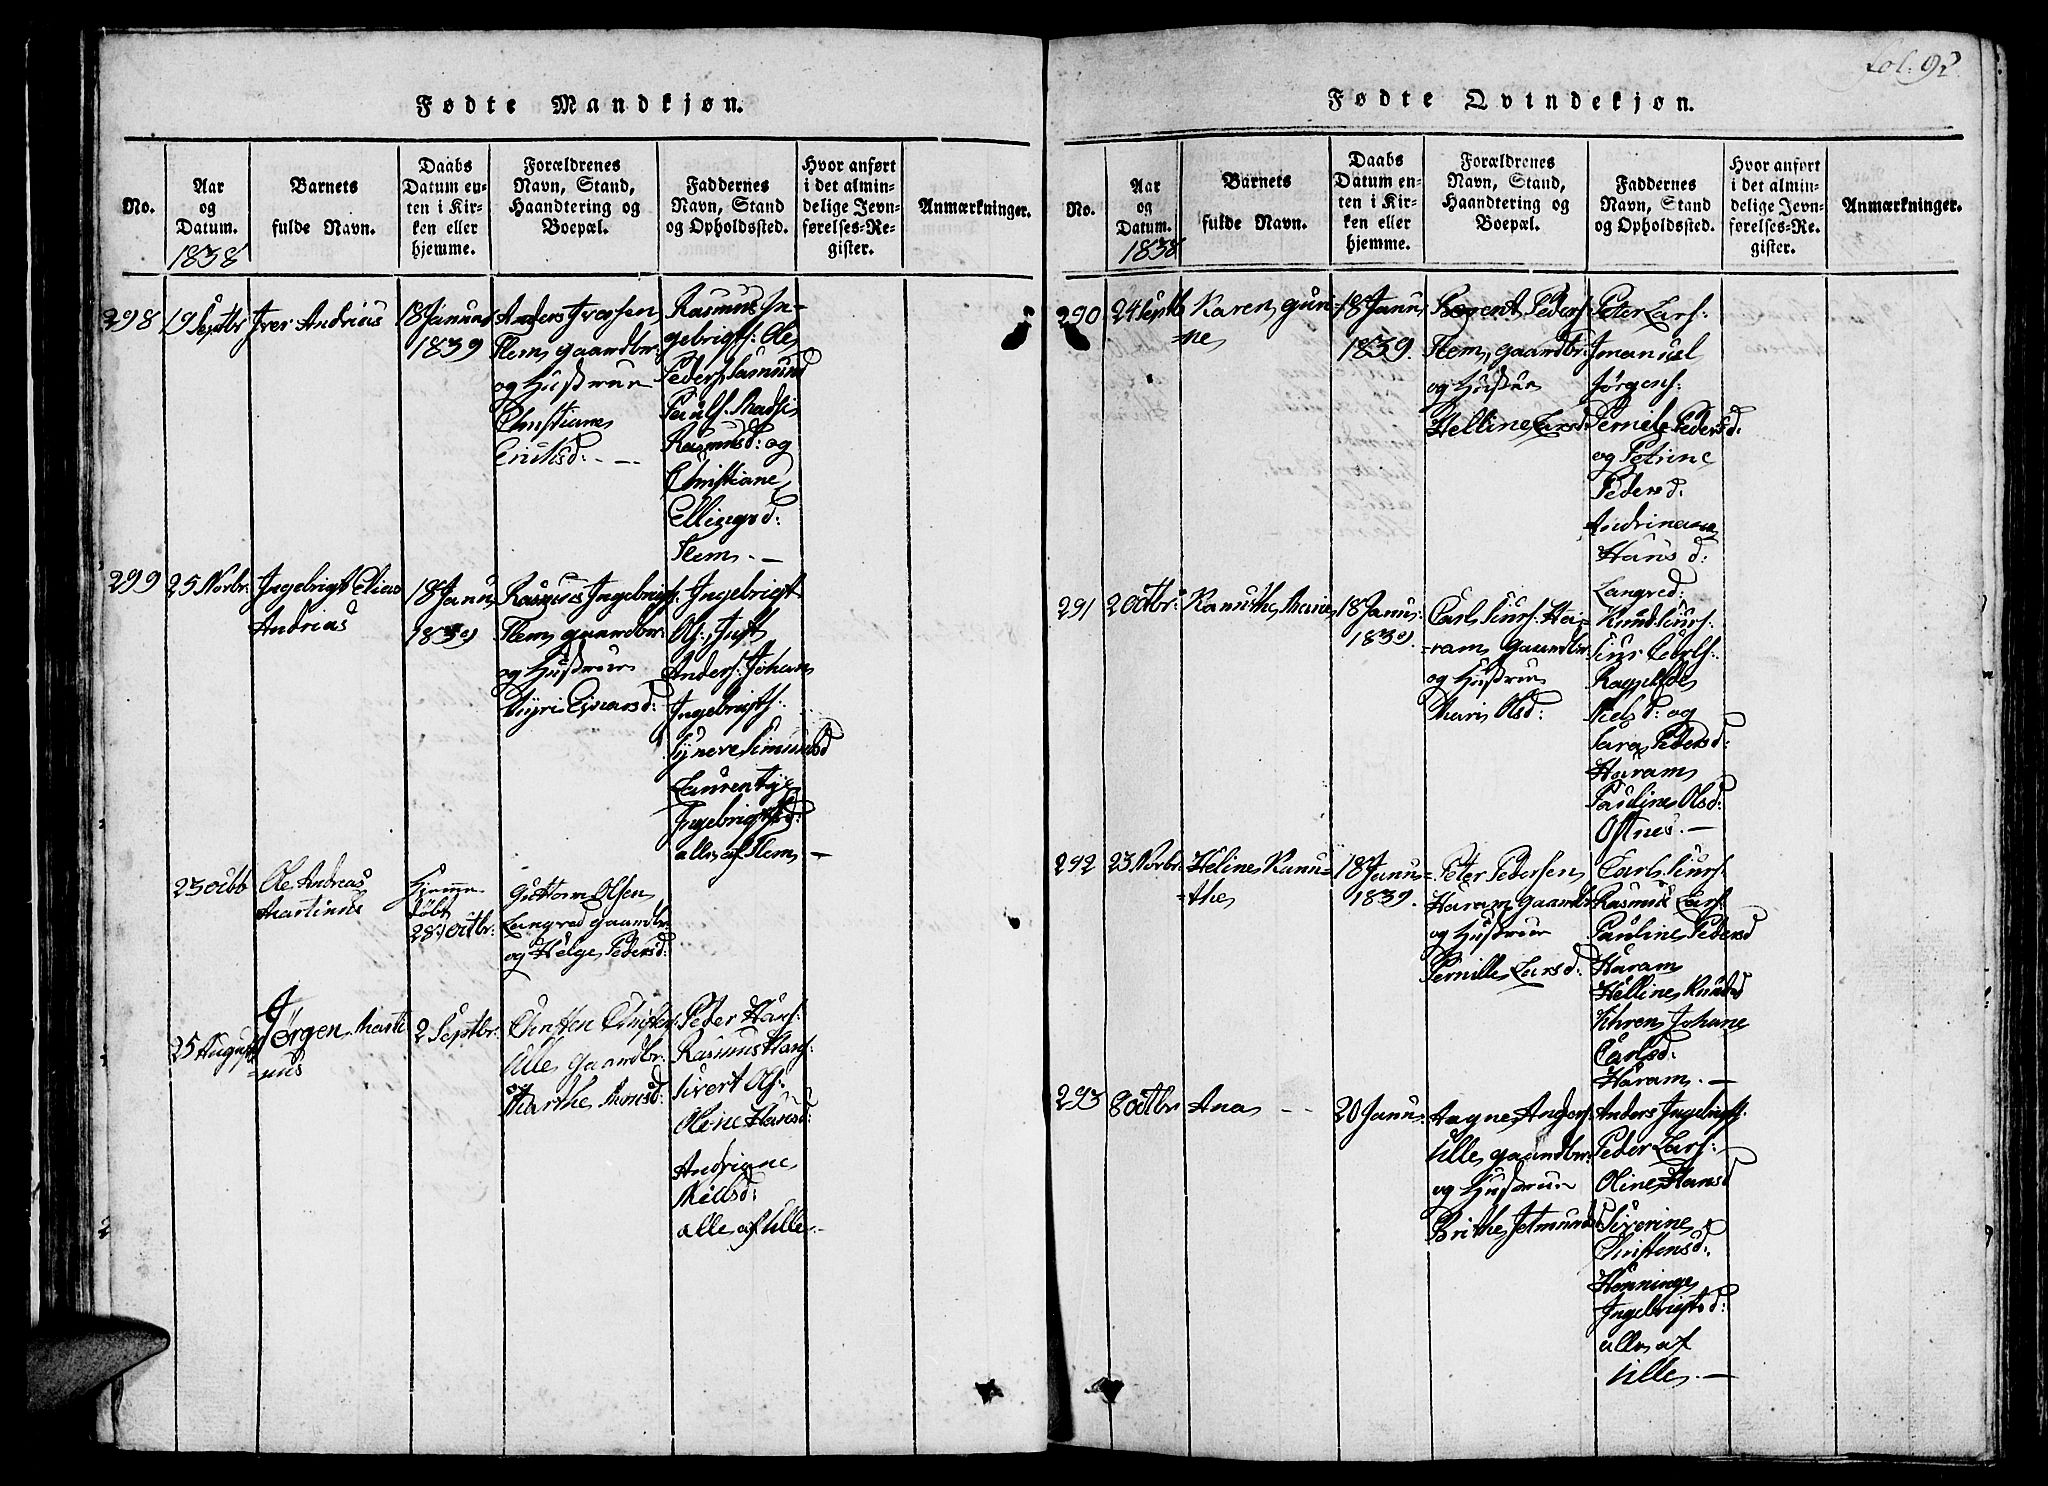 Fol. 92
Fødte Mandkjøn.
No.
Aar
og
Datum.
1838
Barnets
fulde Navn.
Daabs
Datum en-
ten i Kir-
ken eller
hjemme.
Forældrenes
Navn, Stand,
Haandtering og
Boepæl.
Faddernes
Navn, Stand
og Opholdssted.
Hvor anført
i det almin-
delige Jevn-
førelses-Re-
gister.
Anmærkninger.
298
19 Septbr
Iver Andrias
18 Januar
1839
Anders Iversen
Flem gaardbr:
og Hustrue
Christiane
Eriksd: - -
Rasmus In-
gebrigts: Ole
Peders Samund
Pauls.
Rasmusd: og
Christiane
Ellingsd:
Flem. -
299
25 Novbr:
Ingebrigt Elias
Andrias
18 Janu
1839
Rasmus Ingebrigts:
Flem gaardbr:
og Hustrue
Ejnarsd:
Ingebrigt
Ols: Just
Anders: Johan
Ingebrigts:
Synere Simundsd
Laurentse
Ingebrigtsd:
alle af Flem -
23 octb
Ole Andreas
Martinus
Hjemme
døbt
28 octbr:
Guttorm Olsen
Langred gaardbr:
og Helge Pedersd:
25 August
Jørgen Marti
=nus
2 Septbr:
Christen Christens:
Ulle gaardbr:
og
Marthe Monsd:
Peder Hans:
Rasmus Hans:
Sivert Ols:
Oline Hansd:
Andriane
Nielsd:
alle af Ulle. -
Fødte Qvindekjøn.
No.
Aar
og
Datum.
1838
Barnets
fulde Navn.
Daabs
Datum en-
ten i Kir-
ken eller
hjemme.
Forældrenes
Navn, Stand,
Haandtering og
Boepæl.
Faddernes
Navn, Stand
og Opholdssted.
Hvor anført
i det almin-
delige Jevn-
førelses-Re-
gister.
Anmærkninger.
290
24 Septb
Karen Gun
=ne
18 Janu
1839.
Berent Peders:
Flem, gaardbr:
og Hustrue
Helline Larsd:
Peter Lars:
Imanuel
Jørgens:
Pernile Pedersd:
og Petrine
Pedersd:
Andriane
Hansd:
Langred:
291
2 Octbr:
Kanuthe Marie
18 Janu:
1839.
Carl Siurs: Ha=
=ram gaardbr:
og Hustrue
Mari Olsd:
Knud Siurs:
Siur Carls:
Ragnilde
Nielsd: og
Sara Pedersd:
Haram
Pauline Olsd:
Ostnes. -
292
23 Novbr:
Heline Kanu=
=the
18 Janu=
1839.
Peter Pedersen
Haram gaardbr
og Hustrue
Pernille Larsd:
Carl Siurs:
Rasmus Lars:
Pauline Pedersd
Haram
Helline Knudsd
Karen Johane
Carlsd:
Haram. -
293
8 octbr
Ana - -
20 Janu:
Aagne Anders:
Ulle gaardbr:
og Hustrue
Brithe Jetmundsd
Anders Ingebrigts:
Peder Lars: -
Oline Hansd
Siverine
Christensd:
Henninge
Ingebrigtsd:
alle af
Ulle. -